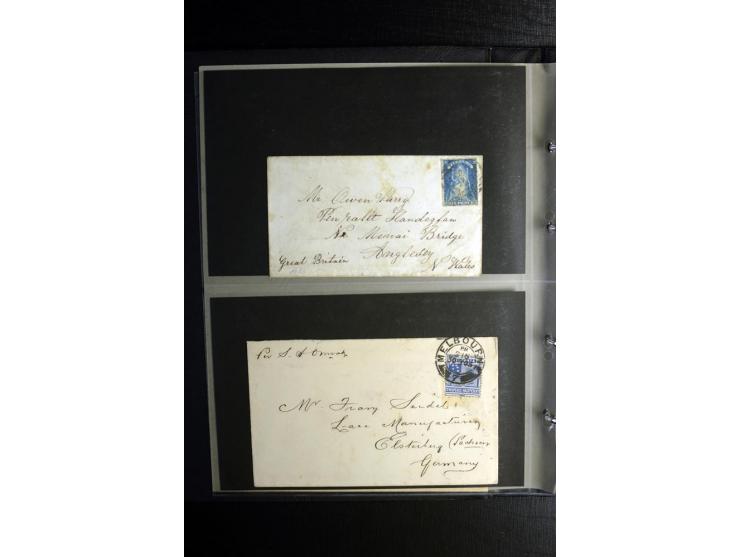 Mr Owen Parry
Pen'rallt Llandegfan
Nr Menai Bridge
Anglesey
Great Britain N Wales
Per S. S Ormuz
MELBOURN
Mr Franz Seidel
Lace Manufacturing
Elsterberg (Sachsen
Germany